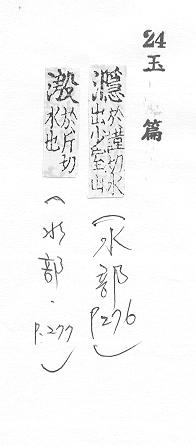 24
玉篇
濦於謹切水
出少室山
(水部 P.276)
溵於斤切
水也
(水部.P.277)